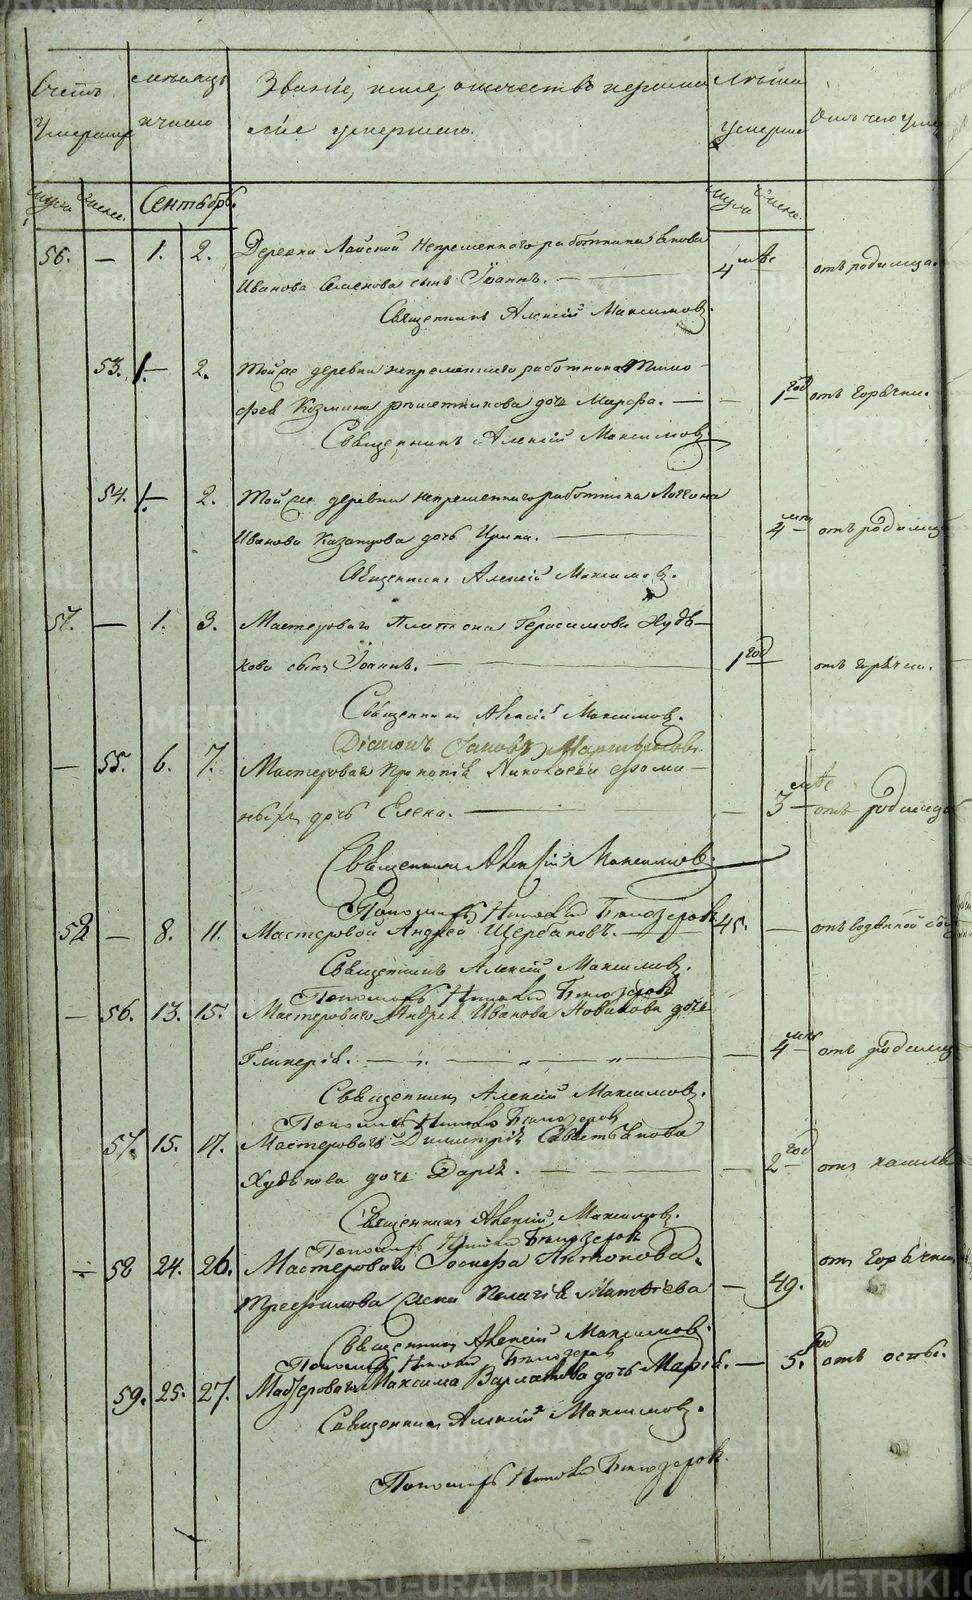 Счетъ мѣсяцъ Званіе, имя, отчество и фамилія Лѣта
умершихъ и число умершаго. умершаго Отъ чего умеръ
муж. женск. Сентябрь. муж. женск.
56. — 1. 2. Деревни Лайской непременнаго работника
Иванова Семенова сынъ Іоаннъ. — 4 мѣс отъ родимца.
Священникъ Алексій Максимовъ.
53. 1. 2. Той же деревни непременнаго работника Тимо-
фея Козмина Решетникова дочь Марфа. — 1 год отъ горячки.
Священникъ Алексій Максимовъ
54. 1. 2. Той же деревни непременнаго работника Логина
Иванова Казанцова дочь Ирина. — 4 мѣс отъ родимца
Священникъ Алексій Максимовъ.
57. — 1. 3. Мастероваго Платона Герасимова Худя-
кова сынъ Іоаннъ. — 1 год отъ горячки.
Священникъ Алексій Максимовъ.
Діаконъ Іаковъ
— 55. 6. 7. Мастероваго Прокопія Николаева Фоми-
ныхъ дочь Елена. — 3 мѣс отъ родимца
Священникъ Алексій Максимовъ.
Пономарь Николай Бѣлозеровъ
58 — 8. 11. Мастеровой Андрей Щербаковъ. — 45. — отъ водяной
Священникъ Алексій Максимовъ.
Пономарь Николай Бѣлозеровъ
— 56. 13. 15. Мастероваго Андрея Иванова Новикова дочь
Гликерія. — 4 мѣс отъ родимца
Священникъ Алексій Максимовъ.
Пономарь Николай Бѣлозеровъ
57. 15. 17. Мастероваго Димитрія Савастьянова
Худякова дочь Дарія. — 2 год отъ кашля
Священникъ Алексій Максимовъ.
Пономарь Николай Бѣлозеровъ
58 24. 26. Мастероваго Іосифа Антонова
Трефилова жена Пелагія Матвѣева — 49. отъ горячки
Священникъ Алексій Максимовъ.
Пономарь Николай Бѣлозеровъ
59. 25. 27. Мастероваго Максима Варлакова дочь Марія. — 5. год отъ оспы.
Священникъ Алексій Максимовъ.
Пономарь Николай Бѣлозеровъ.
METRIKI.GASO-URAL.RU